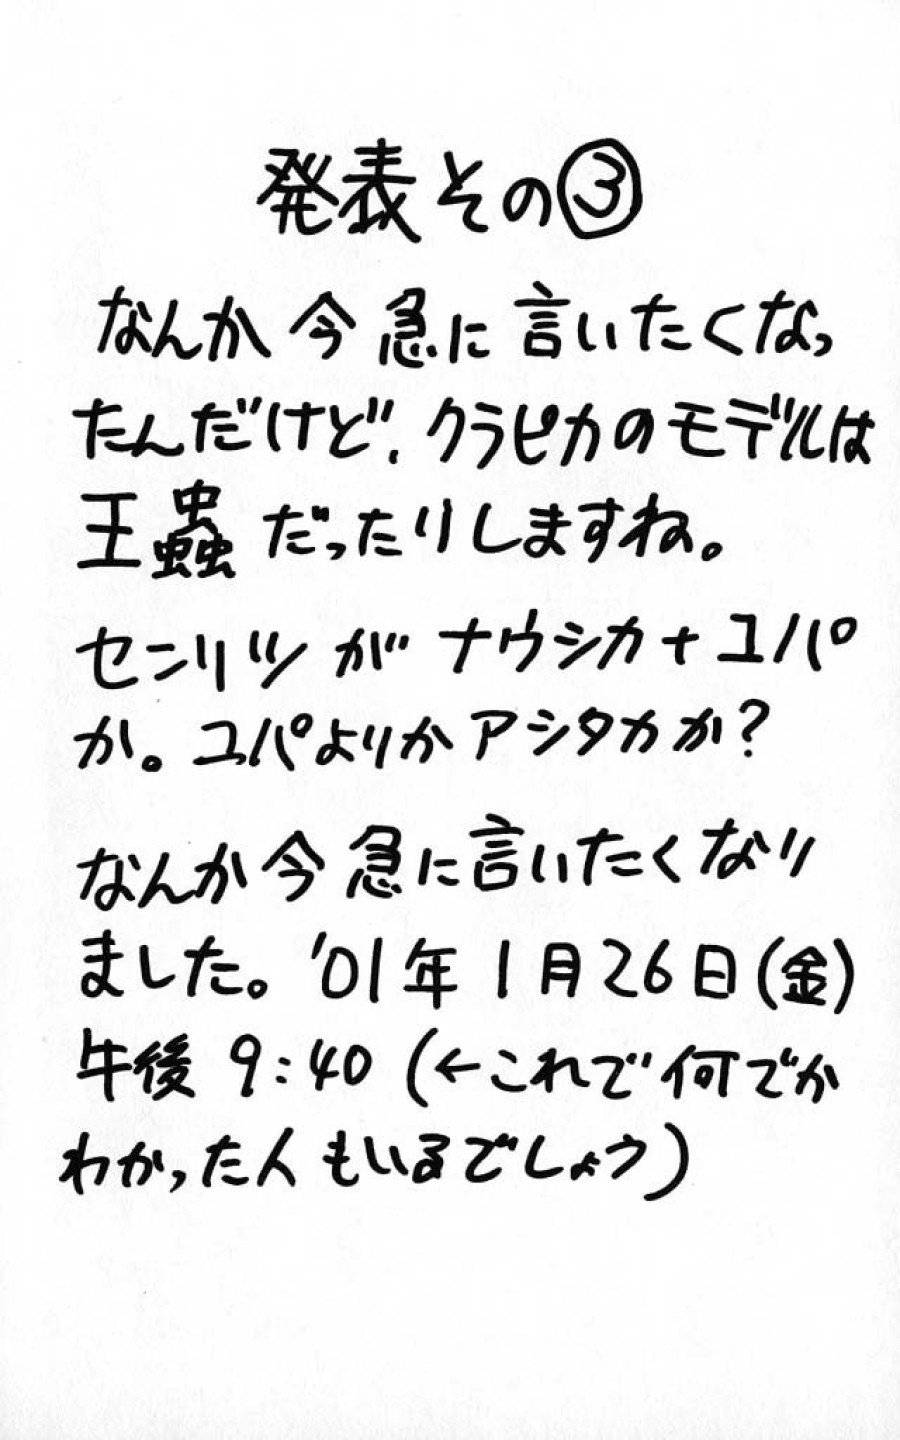 発表その③
なんか今急に言いたくなっ
たんだけど、クラピカのモデルは
王蟲だったりしますね。
センリツがナウシカ+ユパ
か。ユパよりかアシタカか？
なんか今急に言いたくなり
ました。'01年1月26日(金)
午後9:40(←これで何でか
わかった人もいるでしょう)